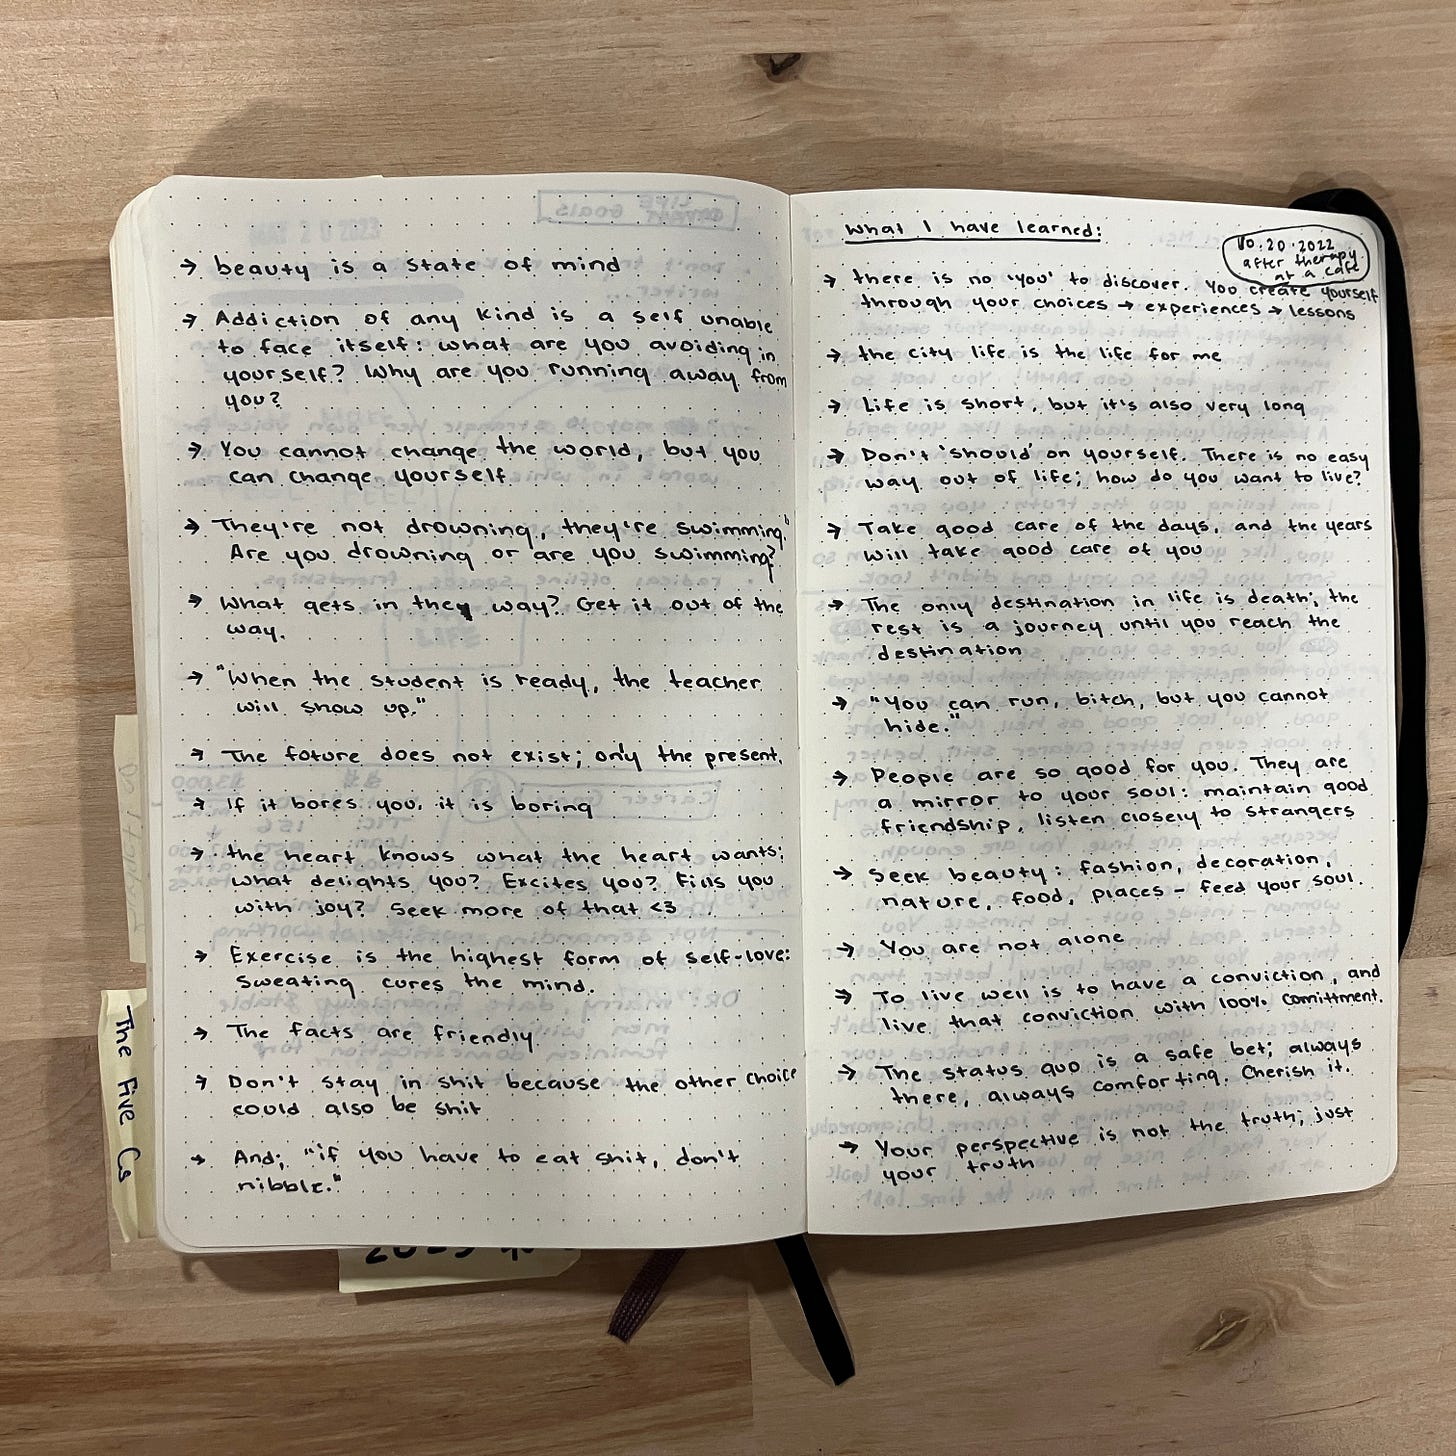 → beauty is a state of mind
→ Addiction of any kind is a self unable
to face itself: what are you avoiding in
yourself? Why are you running away from
you?
→ You cannot change the world, but you
can change yourself
→ They're not drowning, they're swimming."
Are you drowning or are you swimming?
→ What gets in they way? Get it out of the
way.
→ "When the student is ready, the teacher
will show up."
→ The future does not exist; only the present.
→ If it bores you, it is boring
→ the heart knows what the heart wants;
what delights you? Excites you? Fills you
with joy? Seek more of that <3
→ Exercise is the highest form of self-love:
sweating cures the mind.
→ The facts are friendly
→ Don't stay in shit because the other choice
could also be shit
→ And; "if you have to eat shit, don't
nibble."
The Five Cs
What I have learned:
10.20.2022
after therapy
at a cafe
→ there is no 'you' to discover. You create yourself
through your choices → experiences → lessons
→ the city life is the life for me
→ Life is short, but it's also very long
→ Don't 'should' on yourself. There is no easy
way out of life; how do you want to live?
→ Take good care of the days, and the years
will take good care of you
→ The only destination in life is death; the
rest is a journey until you reach the
destination
→ "You can run, bitch, but you cannot
hide."
→ People are so good for you. They are
a mirror to your soul: maintain good
friendship, listen closely to strangers
→ Seek beauty: fashion, decoration,
nature, food, places – feed your soul.
→ You are not alone
→ To live well is to have a conviction, and
live that conviction with 100% comittment.
→ The status quo is a safe bet; always
there, always comforting. Cherish it.
→ Your perspective is not the truth; just
your truth